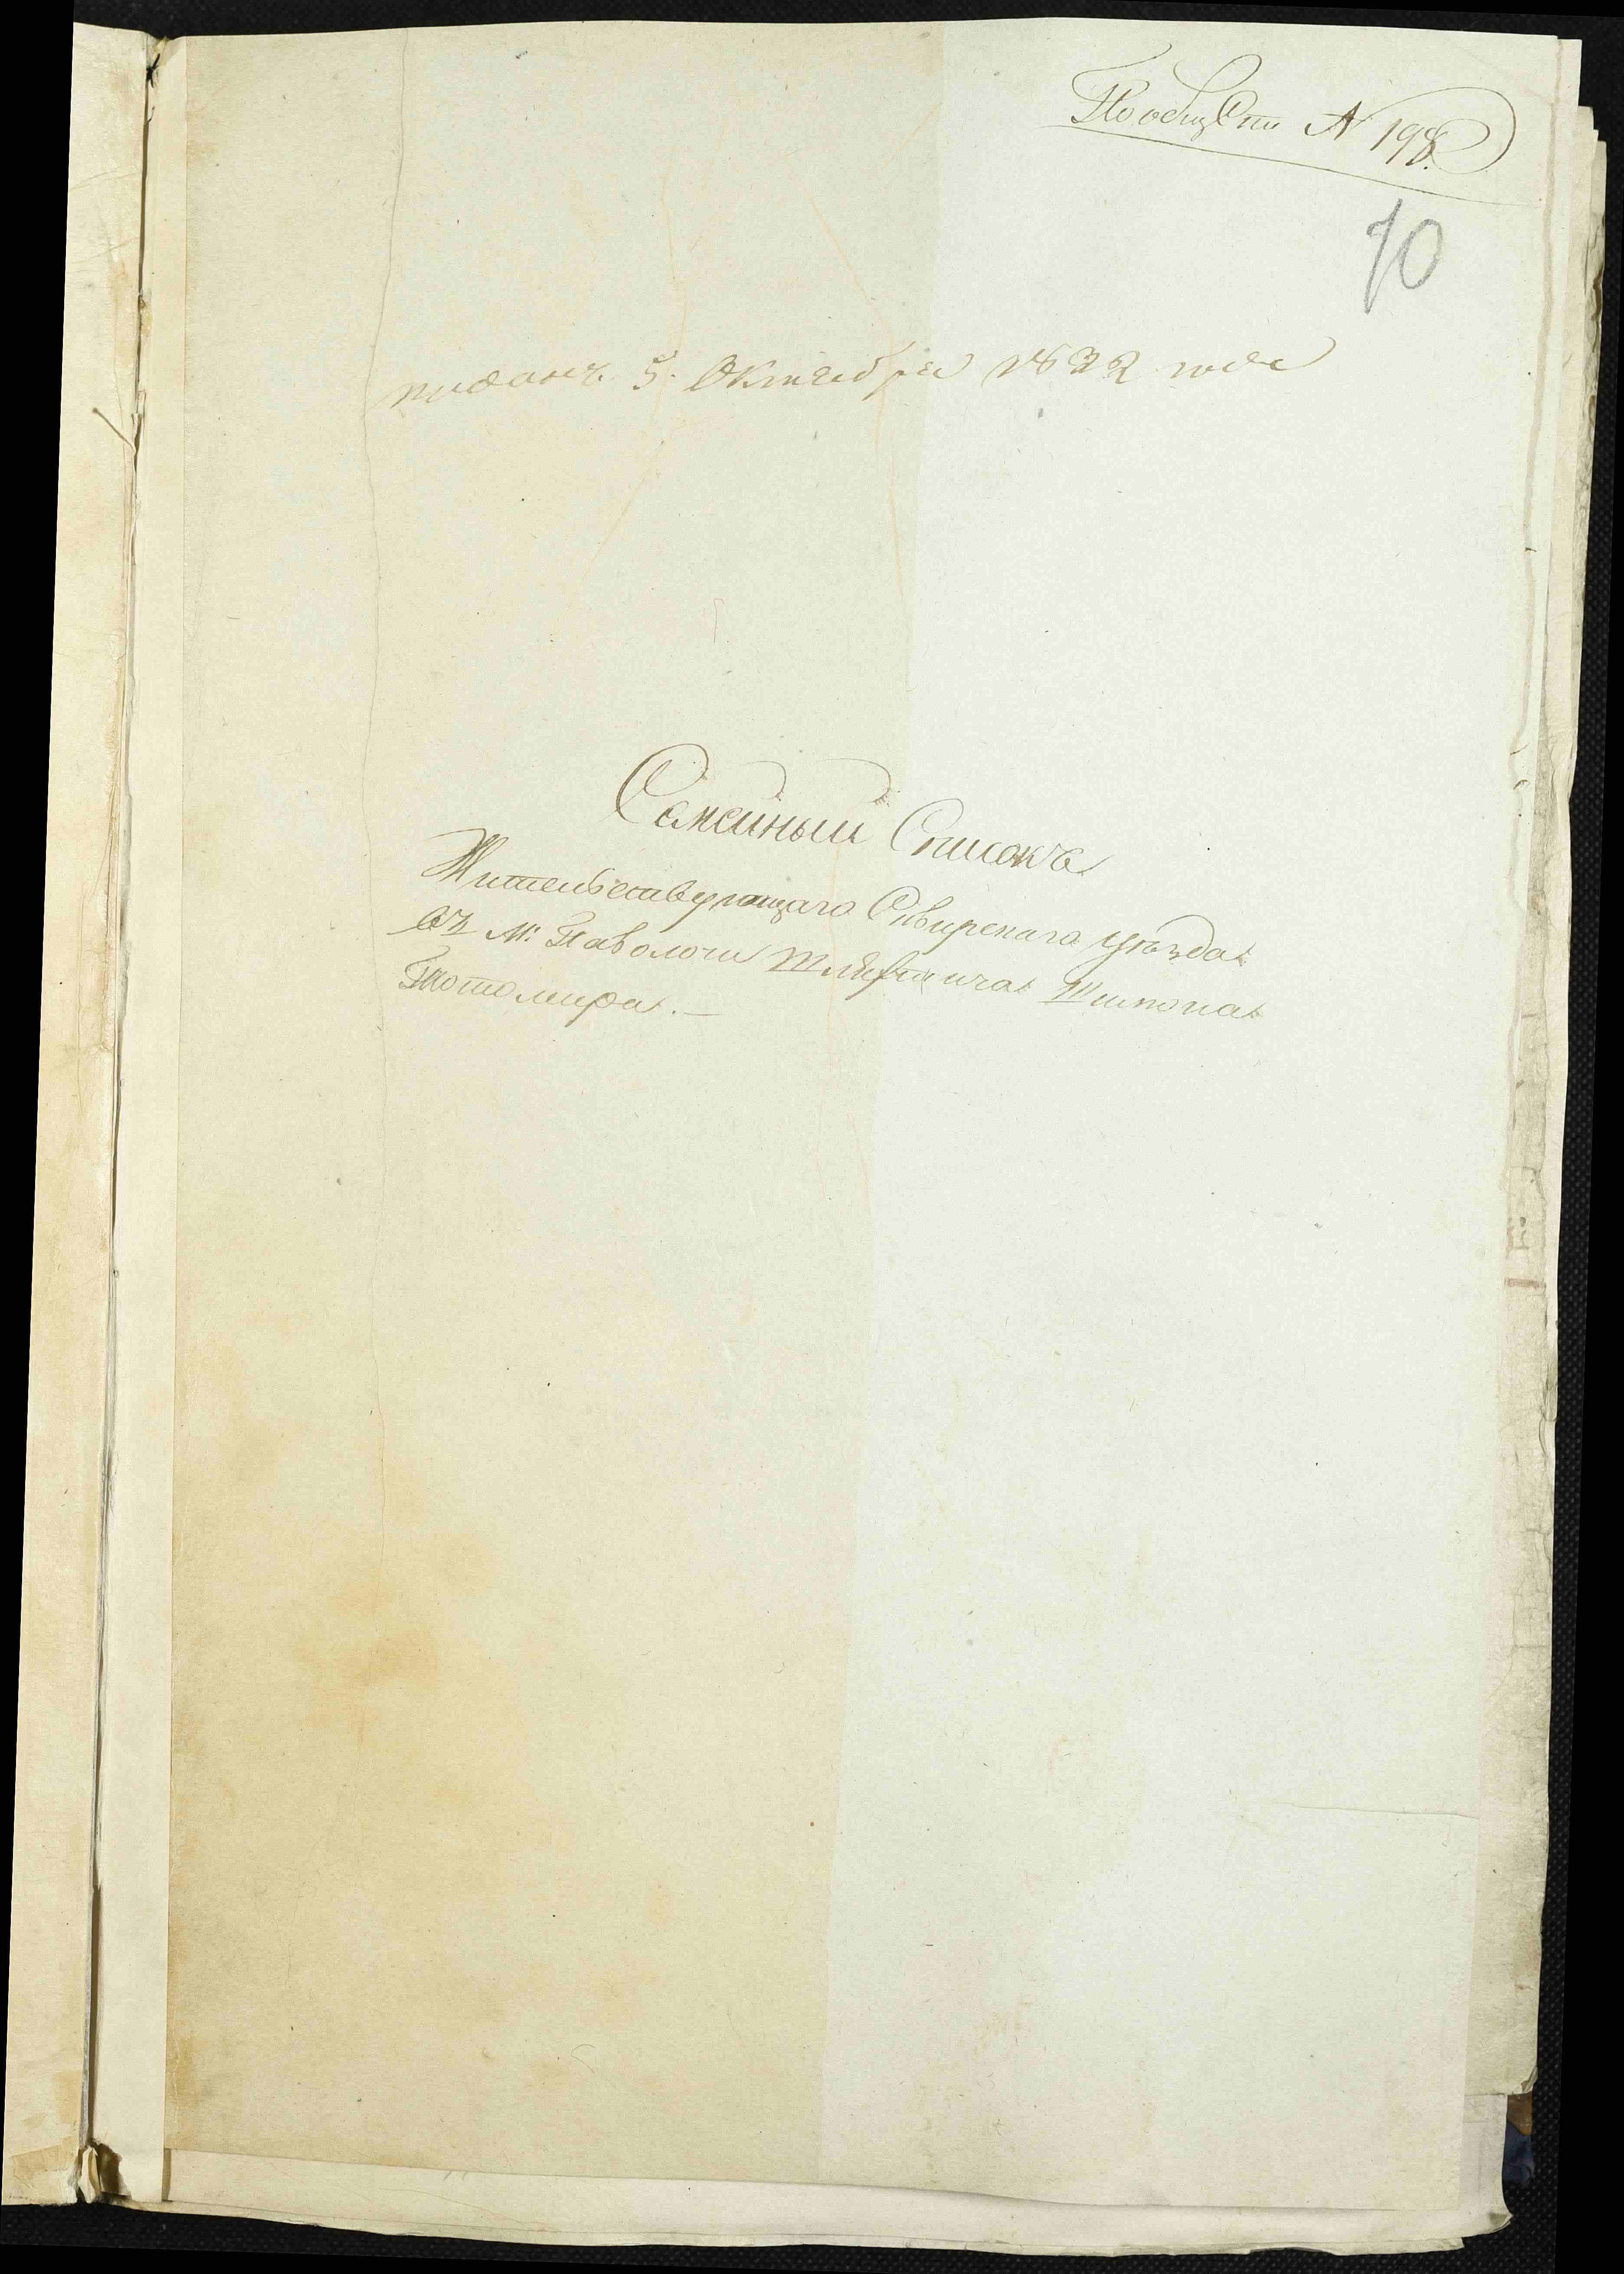 По общ Опи N 198.
10
поданъ 5. Октября 1832 года
Семейный Списокъ
Жительствующаго Сквирскаго уѣзда
въ М: Паволочи Шляхтича